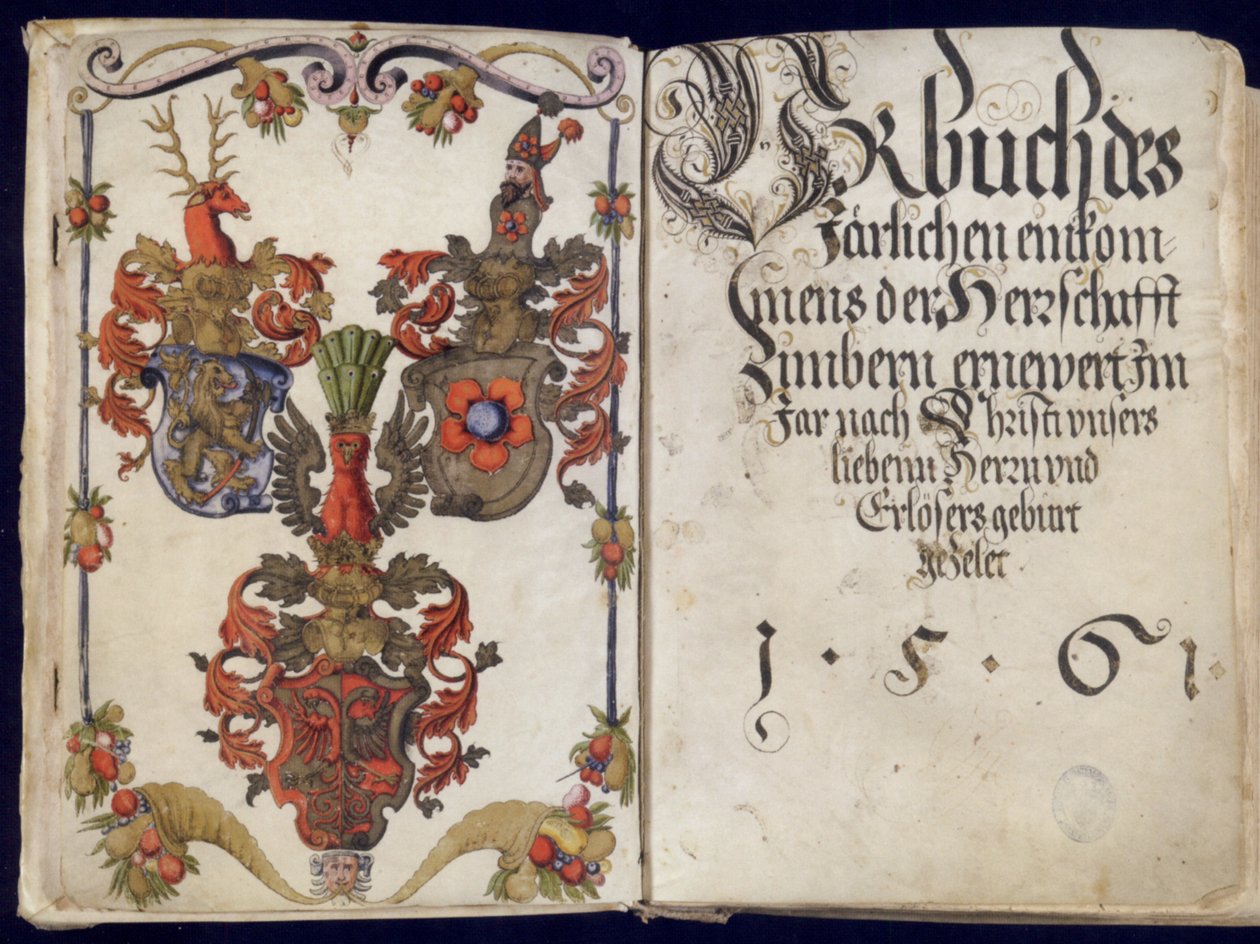 VRbuch des
Järlichen einkom-
mens der Herrschafft
Zimbern ernewert Im
Jar nach Christi vnsers
liebenn Herrn vnd
Erlösers geburt
gezelet
1·5·61·